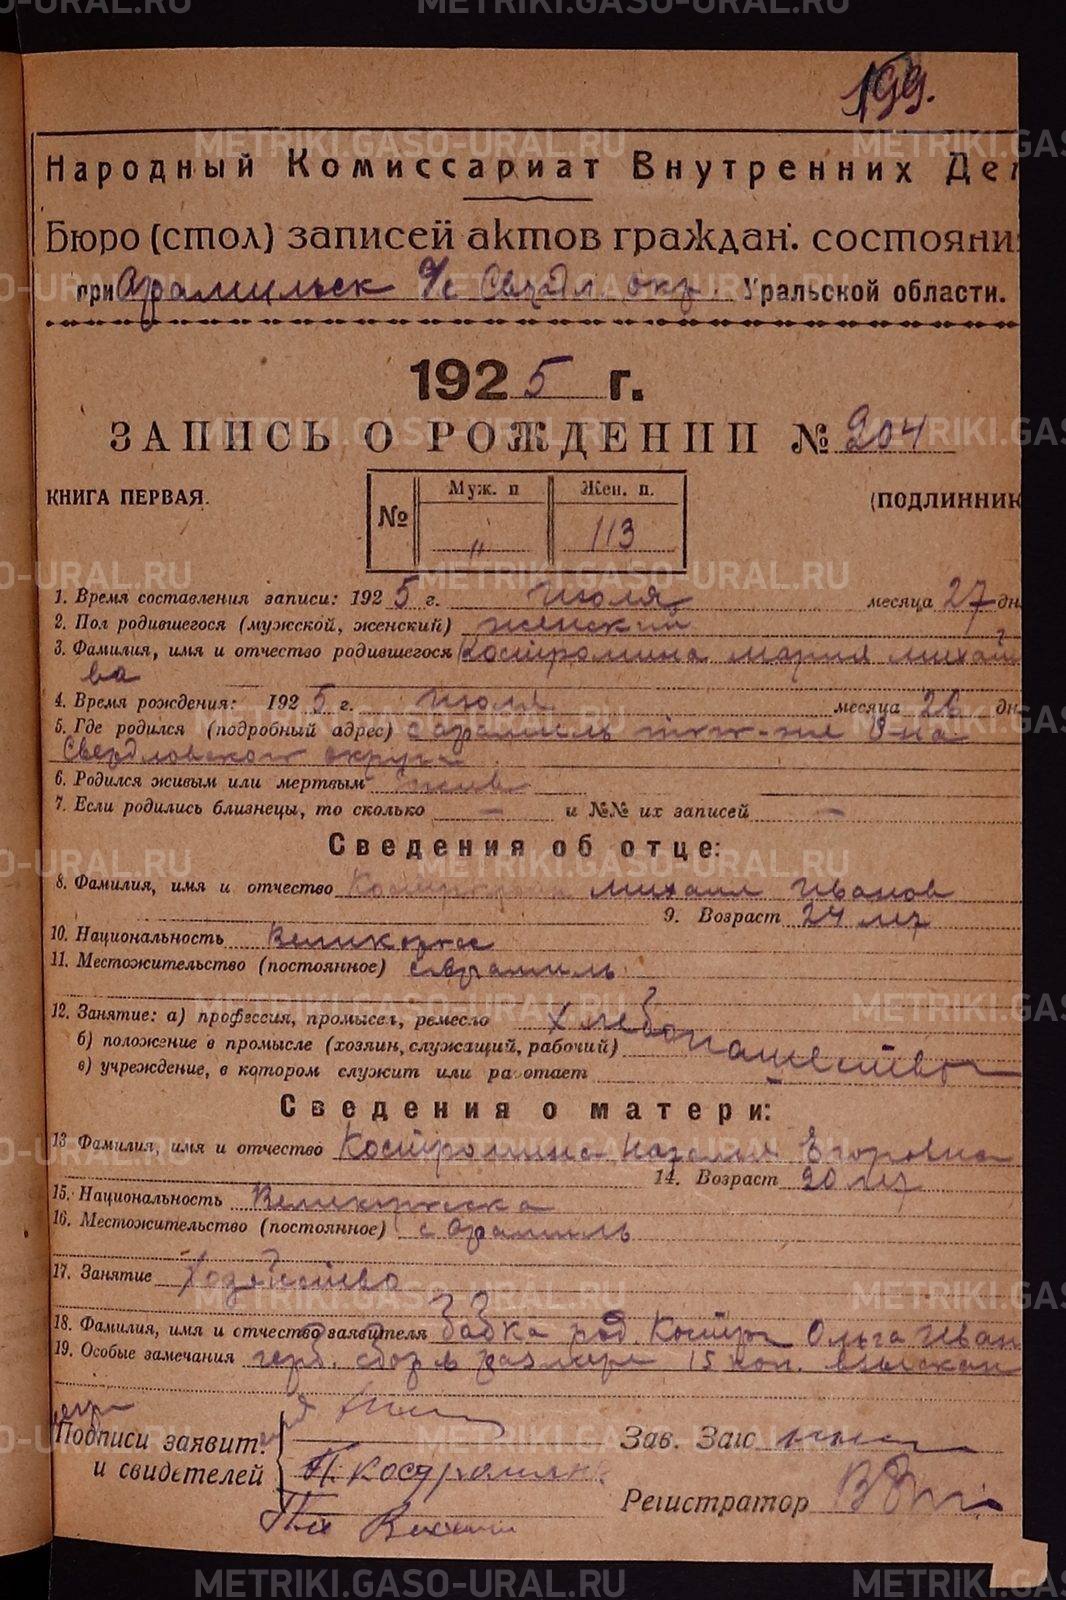 199.
Народный Комиссариат Внутренних Дел
Бюро (стол) записей актов граждан. состояни
при Арамильск с/с Свердл окр Уральской области.
1925 г.
ЗАПИСЬ О РОЖДЕНИИ № 204
КНИГА ПЕРВАЯ. (ПОДЛИННИК
№ Муж. п Жен. п.
" 113
1. Время составления записи: 1925 г. Июля месяца 27 дн
2. Пол родившегося (мужской, женский) женский
3. Фамилия, имя и отчество родившегося Костромина Мария Михай
ва
4. Время рождения: 1925 г. Июля месяца 26 дн
5. Где родился (подробный адрес) с Арамиль того-же р-на
Свердловского округа
6. Родился живым или мертвым жив
7. Если родились близнецы, то сколько — и №№ их записей —
Сведения об отце:
8. Фамилия, имя и отчество Костромин Михаил Иванов
9. Возраст 24 л
10. Национальность Великорос
11. Местожительство (постоянное) с Арамиль
12. Занятие: а) профессия, промысел, ремесло Хлебопашество
б) положение в промысле (хозяин, служащий, рабочий)
в) учреждение, в котором служит или работает
Сведения о матери:
13. Фамилия, имя и отчество Костромина Наталия Егоровна
14. Возраст 20 л
15. Национальность Великоросска
16. Местожительство (постоянное) с Арамиль
17. Занятие Хозяйство
18. Фамилия, имя и отчество заявителя бабка род. Костр Ольга Иван
19. Особые замечания герб. сбор в размере 15 коп. взыскан
Подписи заявит.
и свидетелей П. Костромин
Зав. Заю
Регистратор
METRIKI.GASO-URAL.RU